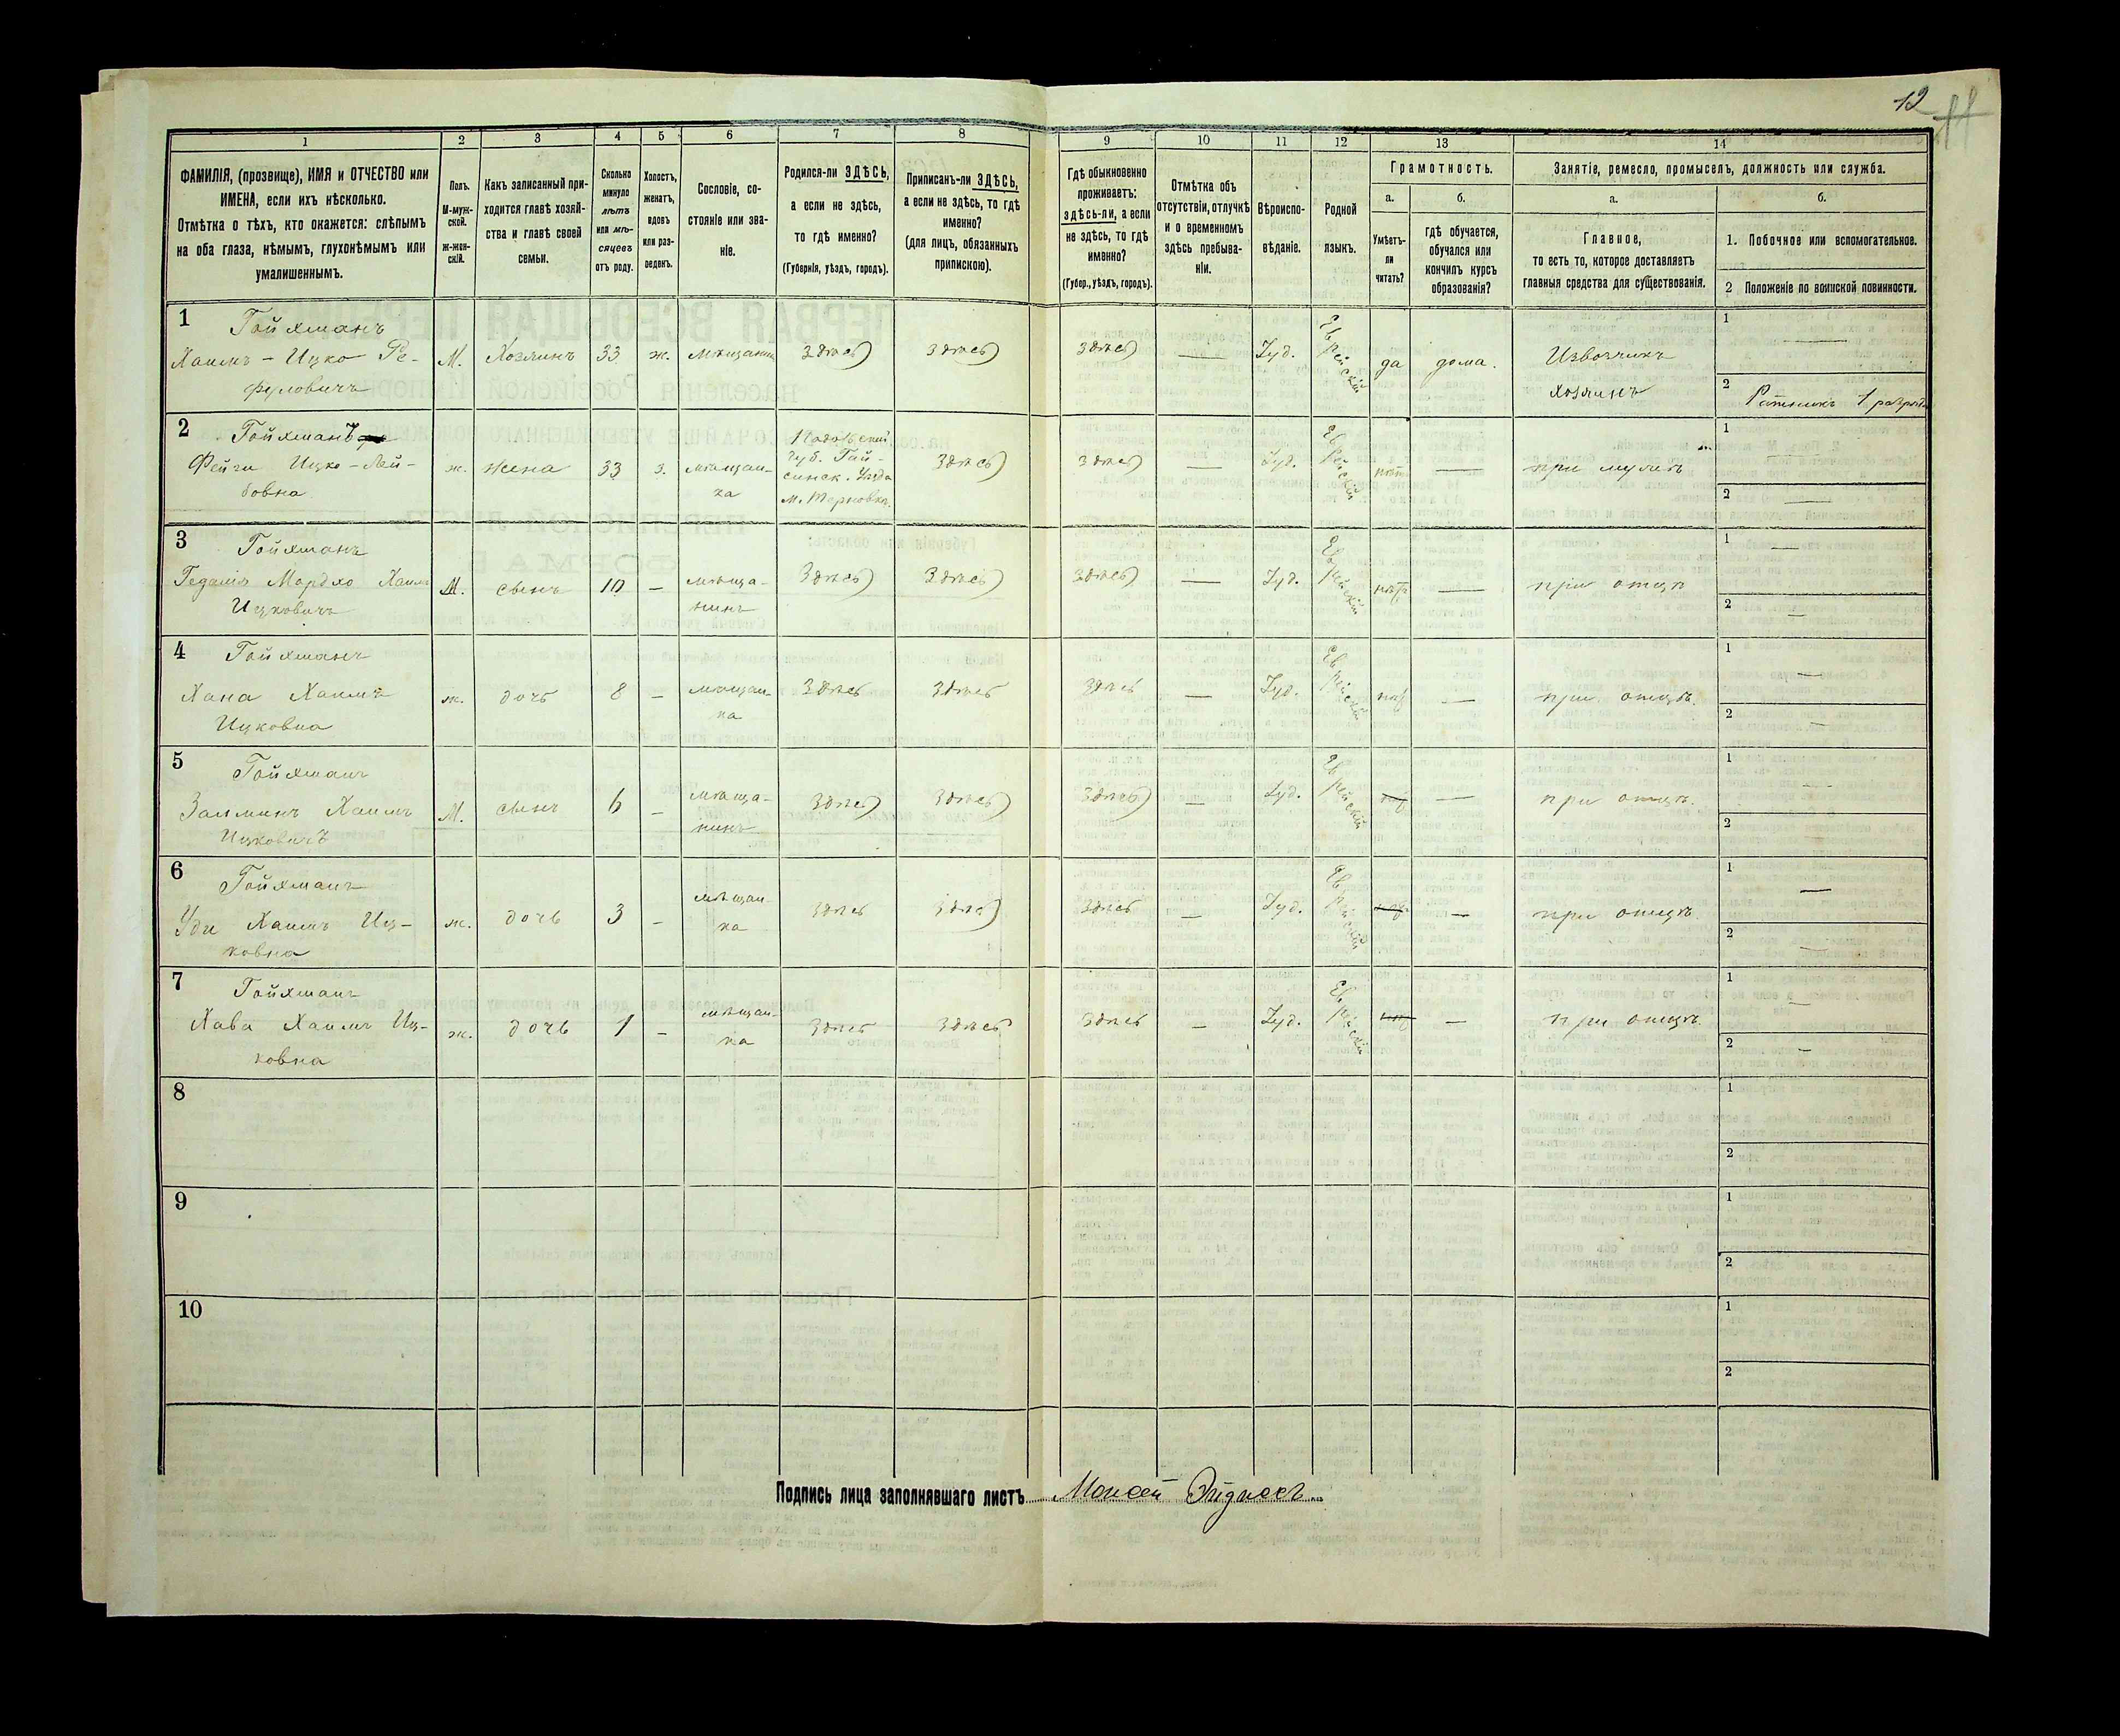 12
11
1 2 3 4 5 6 7 8 9 10 11 12 13 14
ФАМИЛІЯ, (прозвище), ИМЯ и ОТЧЕСТВО или
ИМЕНА, если ихъ нѣсколько.
Отмѣтка о тѣхъ, кто окажется: слѣпымъ
на оба глаза, нѣмымъ, глухонѣмымъ или
умалишеннымъ.
Полъ.
М-муж-
ской.
ж-жен-
скій.
Какъ записанный при-
ходится главѣ хозяй-
ства и главѣ своей
семьи.
Сколько
минуло
лѣтъ
или мѣ-
сяцевъ
отъ роду.
Холостъ,
женатъ,
вдовъ
или раз-
веденъ.
Сословіе, со-
стояніе или зва-
ніе.
Родился-ли ЗДѢСЬ,
а если не здѣсь,
то гдѣ именно?
(Губернія, уѣздъ, городъ).
Приписанъ-ли ЗДѢСЬ,
а если не здѣсь, то гдѣ
именно?
(для лицъ, обязанныхъ
припискою).
Гдѣ обыкновенно
проживаетъ:
здѣсь-ли, а если
не здѣсь, то гдѣ
именно?
(Губер., уѣздъ, городъ).
Отмѣтка объ
отсутствіи, отлучкѣ
и о временномъ
здѣсь пребыва-
ніи.
Вѣроиспо-
вѣданіе.
Родной
языкъ.
Грамотность.
а.
Умѣетъ-
ли
читать?
б.
гдѣ обучается,
обучался или
кончилъ курсъ
образованія?
Занятіе, ремесло, промыселъ, должность или служба.
а.
Главное,
то есть то, которое доставляетъ
главныя средства для существованія.
б.
1. Побочное или вспомогательное.
2 Положеніе по воинской повинности.
1 Гойхманъ
Хаимъ - Ицко Ре-
фуловичъ
М. Хозяинъ 33 ж. мѣщанин здѣсь здѣсь здѣсь — Іуд. Еврейскій да дома. Извозчикъ
хозяинъ
1 —
2 Ратникъ 1 разряд.
2 Гойхманъ
Фейги Ицко - Лей-
бовна
ж. жена 33 з. мѣщан-
ка
Подольской
губ. Гай-
синск. уѣзда
м. Терновка.
здѣсь здѣсь — Іуд. Еврейскій нѣтъ — при мужѣ
1 —
2 —
3 Гойхманъ
Гедалія Мордхо Хаимъ
Ицковичъ
М. сынъ 10 — мѣща-
нинъ
здѣсь здѣсь здѣсь — Іуд. Еврейскій нѣтъ — при отцѣ
1 —
2 —
4 Гойхманъ
Хана Хаимъ
Ицковна
ж. дочь 8 — мѣщан
ка
здѣсь здѣсь здѣсь — Іуд. Еврейскій нѣт — при отцѣ.
1 —
2 —
5 Гойхманъ
Залманъ Хаимъ
Ицковичъ
М. сынъ 6 — мѣща-
нинъ
здѣсь здѣсь здѣсь — Іуд. Еврейскій нѣт — при отцѣ.
1 —
2 —
6 Гойхманъ
Уди Хаимъ Иц-
ковна
ж. дочь 3 — мѣщан-
ка
здѣсь здѣсь здѣсь — Іуд. Еврейскій нѣт — при отцѣ.
1 —
2 —
7 Гойхманъ
Хава Хаимъ Иц-
ковна
ж. дочь 1 — мѣщан-
ка
здѣсь здѣсь здѣсь — Іуд. Еврейскій нѣт — при отцѣ.
1 —
2 —
8
1
2
9
1
2
10
1
2
Подпись лица заполнявшаго листъ Моисей